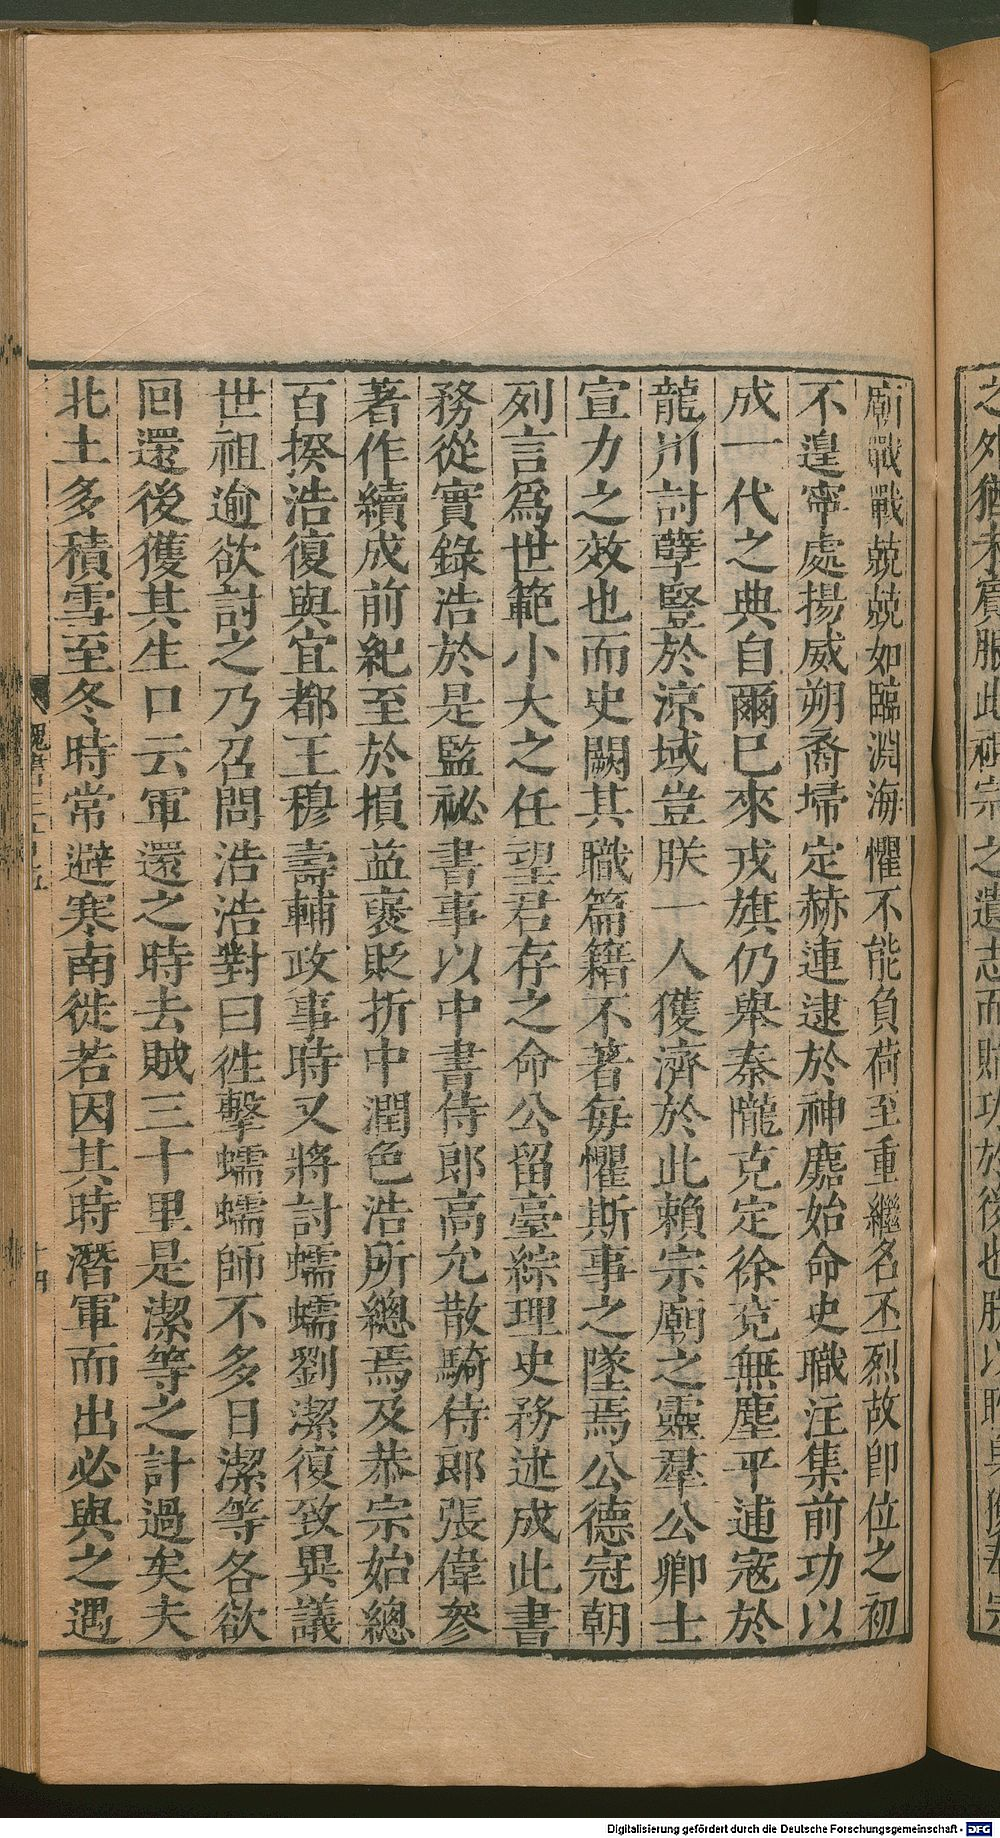 之外猶未賓服此祖宗之遺志而貽功於後也朕以
廟戰戰兢兢如臨淵海懼不能負荷至重繼名丕烈故卽位之初
不遑寧處揚威朔裔埽定赫連逮於神䴥始命史職注集前功以
成一代之典自爾已來戎旗仍舉秦隴克定徐兗無塵平逋寇於
龍川討孽豎於涼域豈朕一人獲濟於此賴宗廟之靈羣公卿士
宣力之效也而史闕其職篇籍不著每懼斯事之墜焉公德冠朝
列言爲世範小大之任望君存之命公留臺綜理史務述成此書
務從實錄浩於是監祕書事以中書侍郞高允散騎侍郞張偉參
著作續成前紀至於損益褒貶折中潤色浩所總焉及恭宗始總
百揆浩復與宜都王穆壽輔政事時又將討蠕蠕劉潔復致異議
世祖逾欲討之乃召問浩浩對曰徃擊蠕蠕師不多日潔等各欲
回還後獲其生口云軍還之時去賊三十里是潔等之計過矣夫
北土多積雪至冬時常避寒南徙若因其時潛軍而出必與之遇
魏書三十五
十四
Digitalisierung gefördert durch die Deutsche Forschungsgemeinschaft - DFG